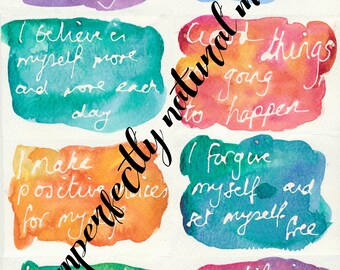 I believe in
myself more
and more each
day
Good
things
going
to happen
I make
positive
for my
I forgive
myself and
set myself
free
imperfectly natural m